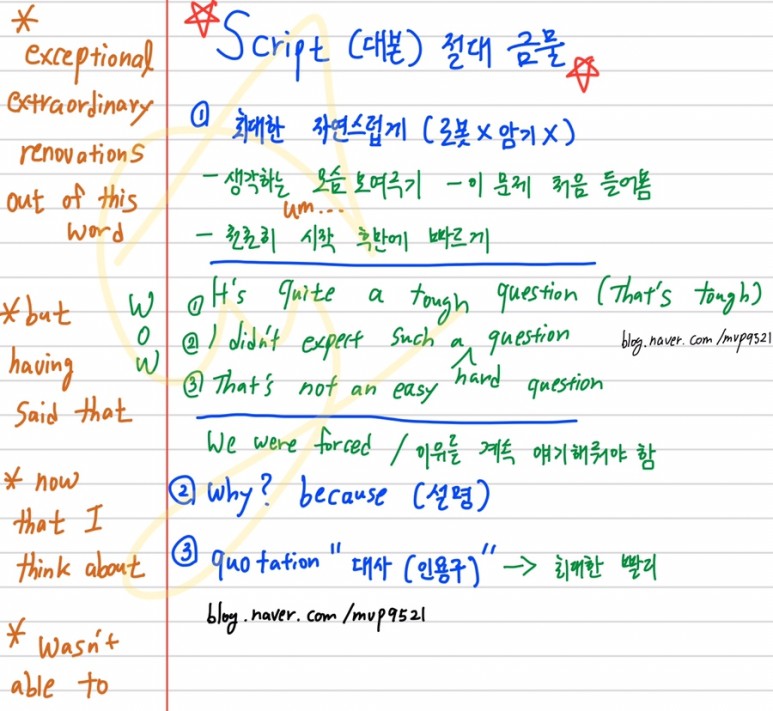 *
exceptional
extraordinary
renovations
out of this
word
*but
having
said that
* now
that I
think about
* wasn't
able to
Script (대본) 절대 금물
① 최대한 자연스럽게 (로봇X 암기X)
- 생각하는 모습 보여주기 - 이 문제 처음 들어봄
um...
- 천천히 시작 후반에 빠르게
WOW
① It's quite a tough question (That's tough)
② I didn't expert such a question
hard
blog.naver.com/mvp9521
③ That's not an easy question
We were forced / 이유를 계속 얘기해줘야 함
② Why? because (설명)
③ quotation "대사 (인용구)" -> 최대한 빨리
blog.naver.com/mvp9521